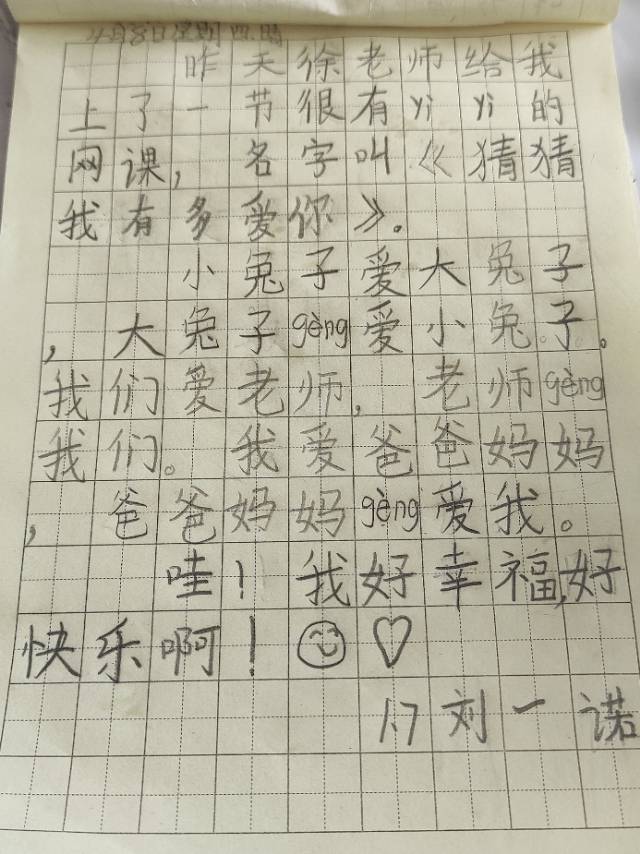 4月8日 星期四 晴
昨天徐老师给我
上了一节很有yì yì的
网课，名字叫《猜猜
我有多爱你》。
小兔子爱大兔子
，大兔子gèng爱小兔子。
我们爱老师，老师gèng
我们。我爱爸爸妈妈
，爸爸妈妈gèng爱我。
哇！我好幸福，好
快乐啊！
1.7 刘一诺